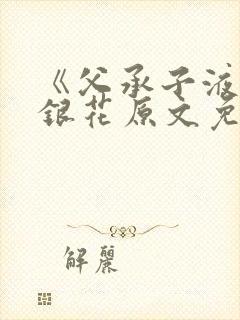 《父承子液
銀花原文免
解麗